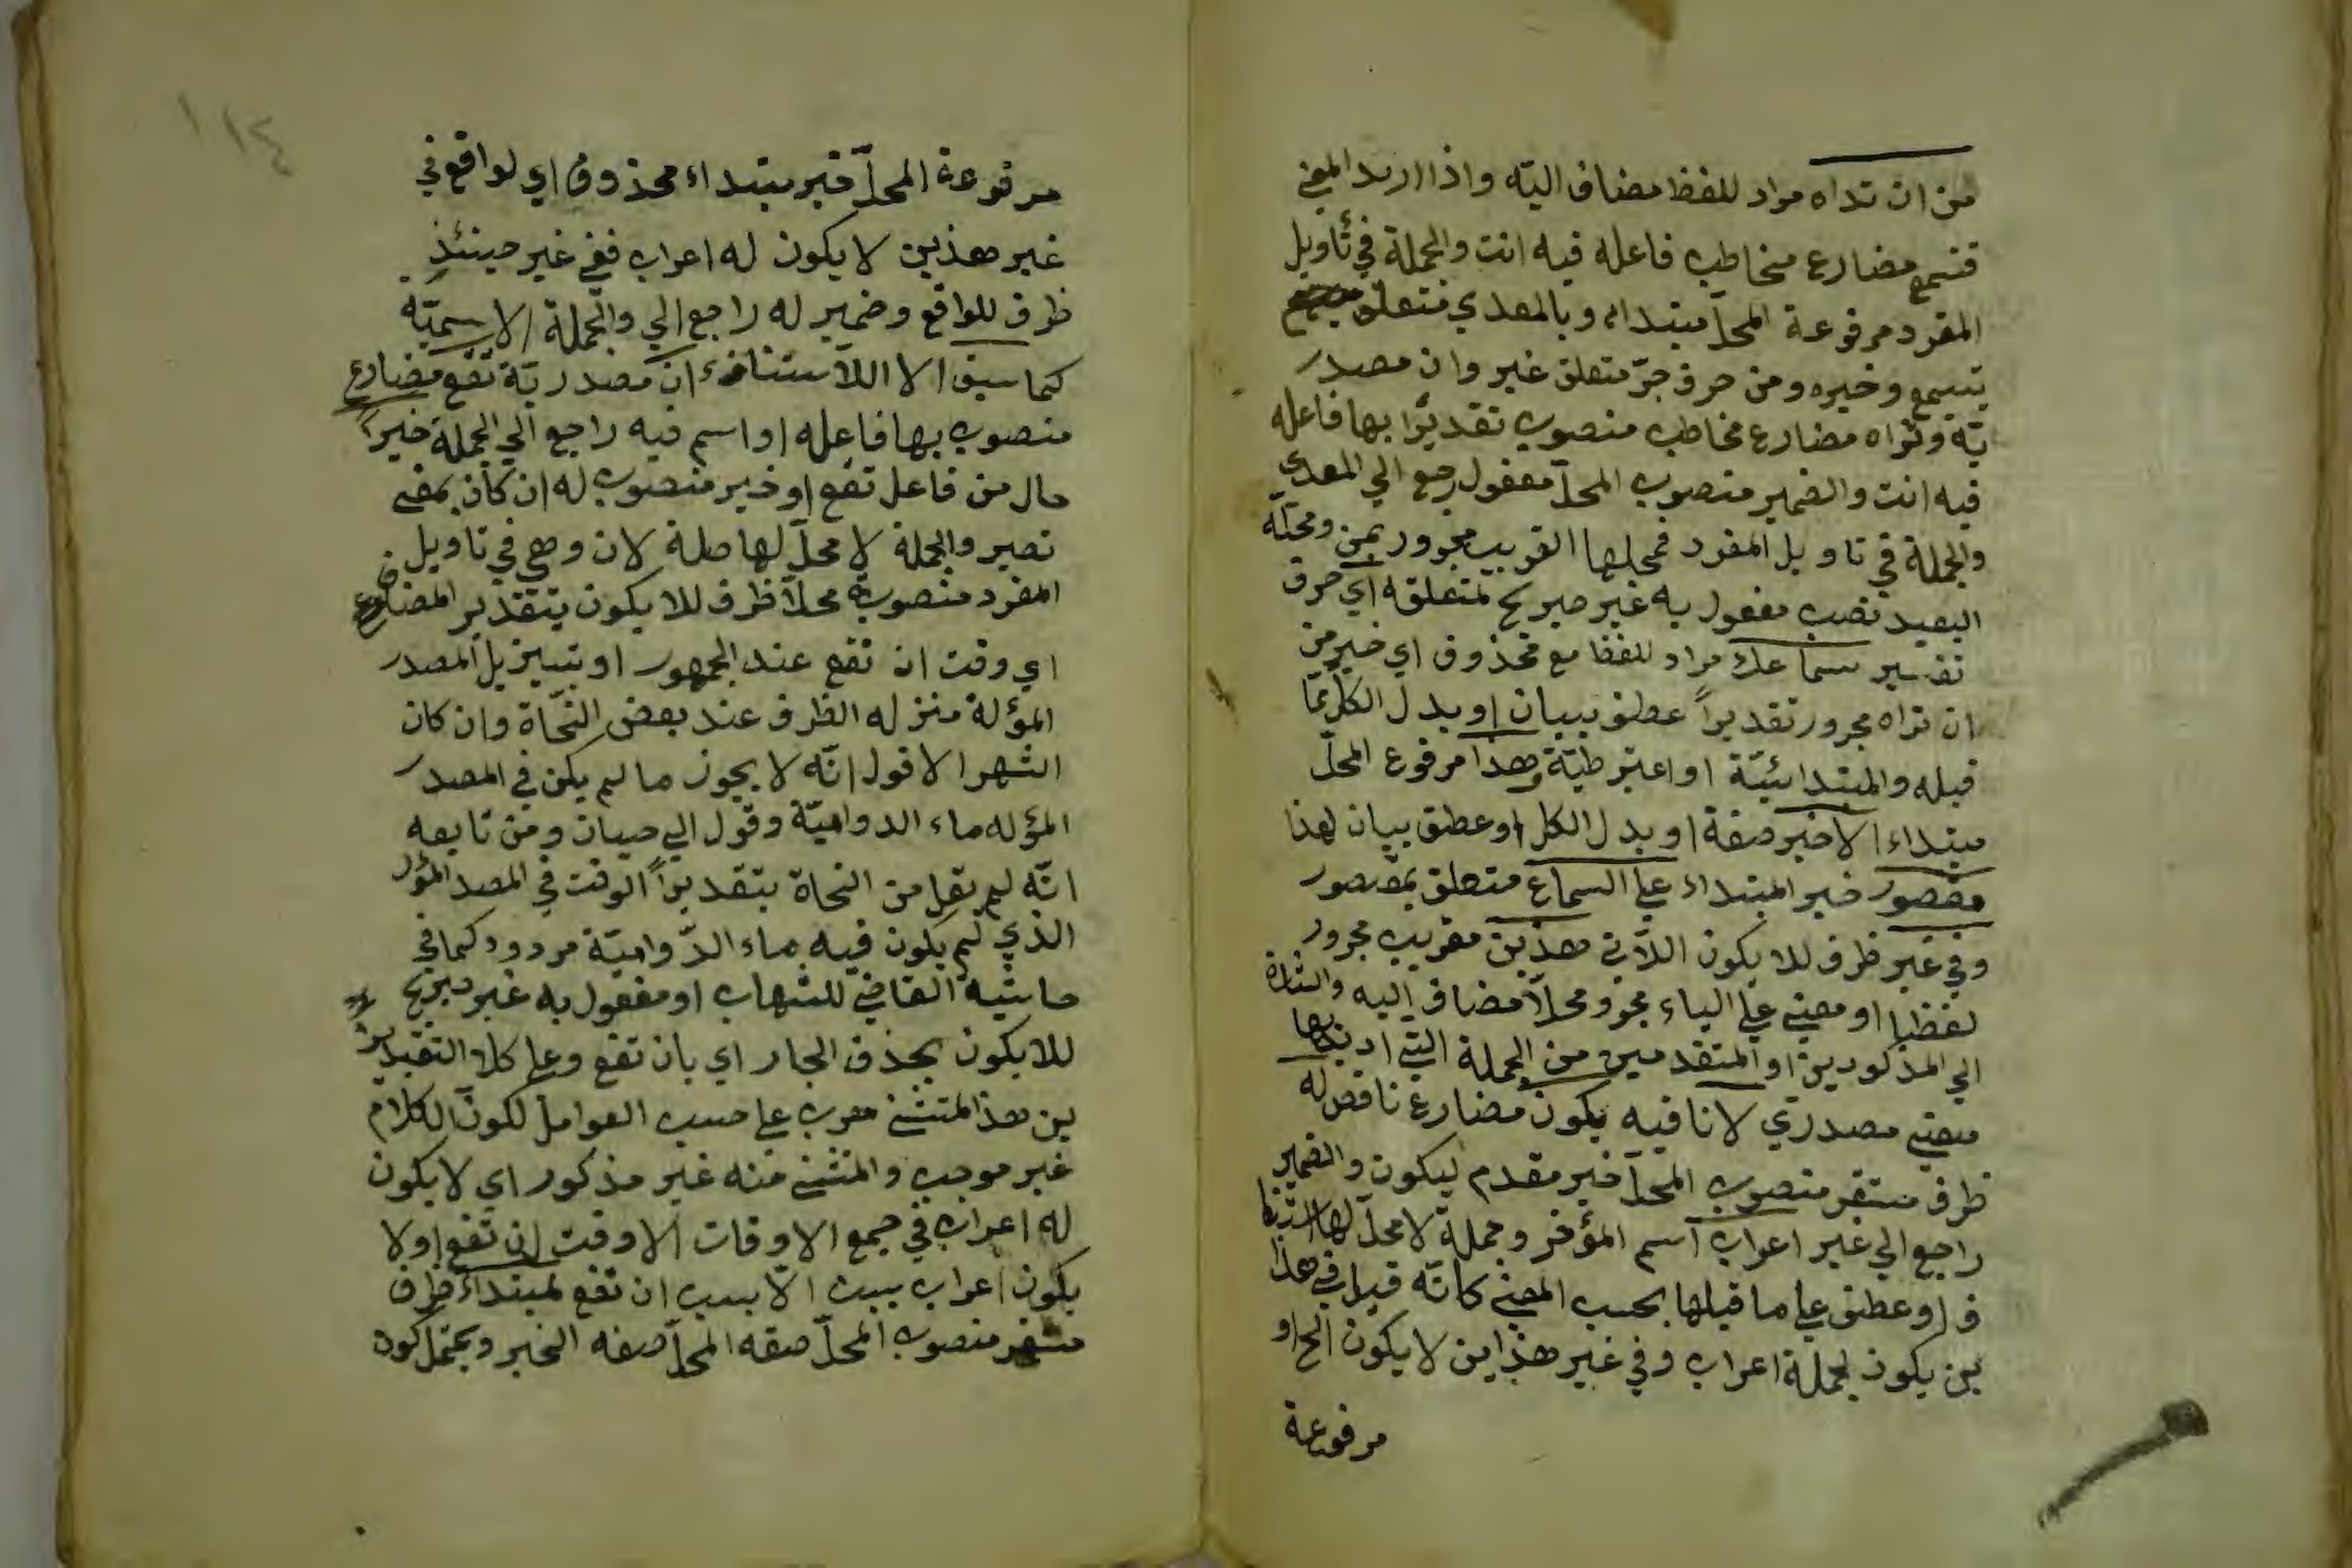 من ان تداه مراد للفظ مضاف اليّه واذا اريد المعنى
فتسمع مضارع مخاطب فاعله فيه انت والجملة في تأويل
المفرد مرفوعة المحلّ مبتداء وبالمعدي متعلق
بتسمع وخيره ومن حرف جرّ متعلق غير وان مصدر
يّة وتراه مضارع مخاطب منصوب تقديرًا بها فاعله
فيه انت والضمير منصوب المحلّ مفعول رجع الي المعدي
والجملة في تاويل المفرد فمحلها القريب مجرور بمن ومحلّه
البعيد نصب مفعول به غير صريح لمتعلقه اي حرف
تفسير سماعك مراد للفظ مع محذوف اي خير من
ان تراه مجرور تقديراً عطف بيان او بدل الكل ممّا
قبله والمبتدائيّة او اعترطيّة وهذا مرفوع المحلّ
مبتداء الاخير صفة او بدل الكل او عطف بيان لهذا
مقصور خبر المبتداء علي السماع متعلق بمقصور
وفي غير ظرف للا يكون اللآتي هذين مقريب مجرور
لفظيا او مبني علي الياء مجرو محلّا مضاف اليه والشارة
الي المذكورين او المتقدمين من الجملة التي اريد بها
معني مصدري لا نافيه يكون مضارع ناقص له
ظرف مستقر منصوب المحلّ خبر مقدم ليكون والضمير
راجع الي غير اعراب اسم المؤخر وجملة لا محلّ لها استينا
ف او عطف علي ما قبلها بحسب المعني كانّه قيل في هذا
ين يكون لجملة اعراب وفي غير هذاين لا يكون الخ او
مرفوعة
مرفوعة المحلّ خبر مبتداء محذوف اي لواقع في
غير هذين لا يكون له اعراب ففي غير حينئذٍ
ظرف للواقع وضمير له راجع الي والجملة الاسميّة
كما سبق الا اللاستنافء ان مصدريّة تقع مضارع
منصوب بها فاعله او اسم فيه راجع الي الجملة خبرًا
حال من فاعل تقع او خبر منصوب له ان كان بمعني
تصير والجملة لا محلّ لها صلة لان وهي في تاويل
المفرد منصوبة محلّا ظرف للا يكون بتقدير المضاف
اي وقت ان تقع عند الجمهور او بتنزيل المصدر
المؤلة منزله الظرف عند بعض النحّاة وان كان
الشهر الاقول انّه لا يجوز ما لم يكن في المصدر
المؤله ماء الدواميّة وقول الي حيان ومن تابعه
انّه لم يقل من النحاة بتقديراً الوقت في المصد المؤل
الذي لم يكون فيه ماء الدّواميّة مردود كما في
حاشية القاضي للشهاب او مفعول به غير صريح
للا يكون بحذف الجار اي بان تقع وعلي كلا التقدير
ين هذا المتثني معرب علي حسب العوامل لكون الكلام
غير موجب والمثني منه غير مذكور اي لا يكون
له اعراب في جمع الاوقات الا وقت ان تقع او لا
يكون اعراب ببب الّا ببب ان تقع لمبتداء ظرف
مستقر منصوب المحلّ صفه المحلّ صفه الخبر ويحتمل كون
١١٤